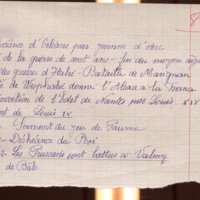 d'Orléans par Jeanne d'Arc
de la guerre de cent ans - fin du moyen âge
des guerres d'Italie - Bataille de Marignan
de Westphalie donne l'Alsace à la France
Révocation de l'Edit de Nantes par Louis XIV
de Louis IX
Serment du jeu de Paume
- Déchéance du Roi
- Les Prussiens sont battus à Valmy
de Bâle